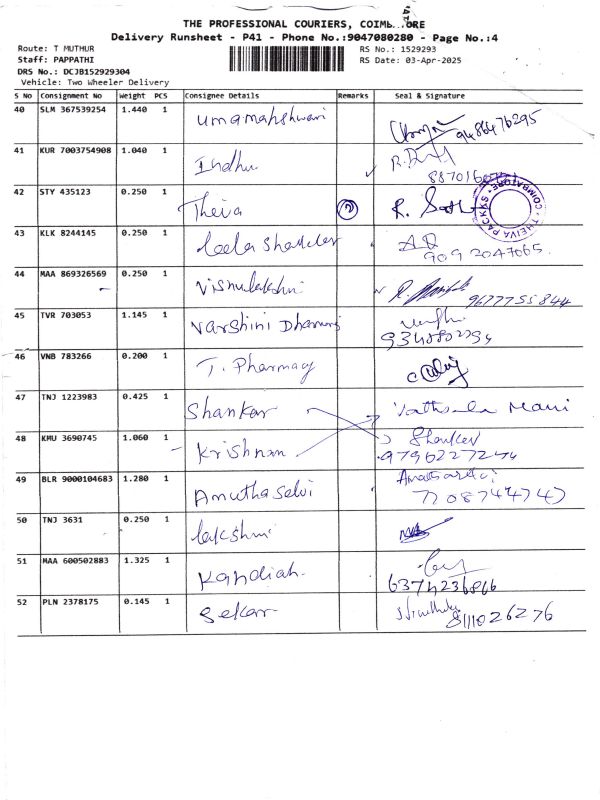 THE PROFESSIONAL COURIERS, COIMB...ORE
Delivery Runsheet - P41 - Phone No.:9047080280 - Page No.:4
Route: T MUTHUR
RS No.: 1529293
Staff: PAPPATHI
RS Date: 03-Apr-2025
DRS No.: DCJB152929304
Vehicle: Two Wheeler Delivery
S No Consignment No Weight PCS Consignee Details Remarks Seal & Signature
40 SLM 367539254 1.440 1 Umamaheshwari 9486476295
41 KUR 7003754908 1.040 1 Indhu
42 STY 435123 0.250 1 Theiva 2
COIMBATORE THEIVA PACKKS
43 KLK 8244145 0.250 1 Leela Shankar 909 2047065.
44 MAA 869326569 0.250 1 Visnulakshmi 9677755844
45 TVR 703053 1.145 1 Varshini
46 VNB 783266 0.200 1 T. Pharmacy
47 TNJ 1223983 0.425 1 Shankar Vathsala Mani
48 KMU 3690745 1.060 1 Krishnan Shanker
49 BLR 9000104683 1.280 1 Amuthaselvi
50 TNJ 3631 0.250 1 Lakshmi
51 MAA 600502883 1.325 1 Kandiah 6374236866
52 PLN 2378175 0.145 1 Sekar 8111026276